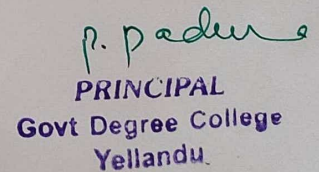 P.
PRINCIPAL
Govt Degree College
Yellandu.